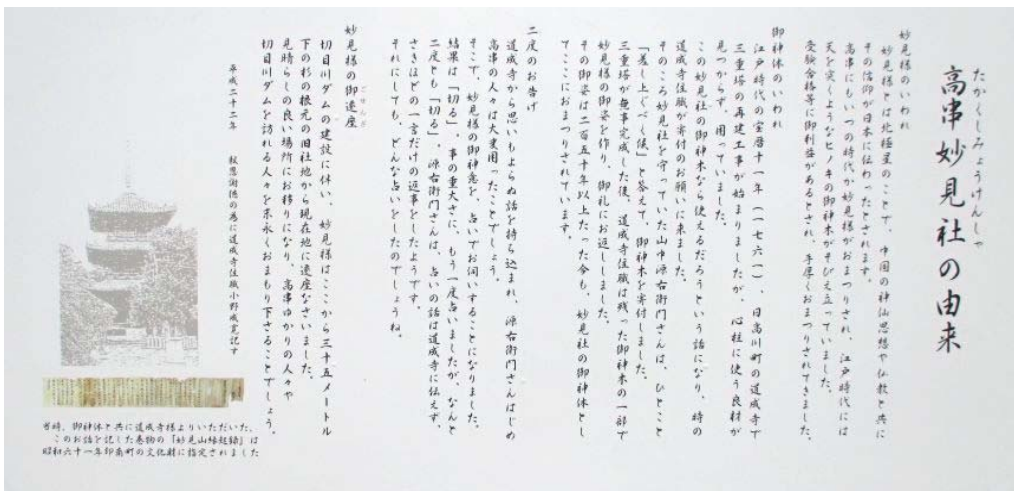 たかくしみょうけんしゃ
高串妙見社の由来
妙見様のいわれ
妙見様とは北極星のことで、中国の神仙思想や仏教と共に
その信仰が日本に伝わったとされます。
高串にもいつの時代か妙見様がおまつりされ、江戸時代には
天を突くようなヒノキの御神木がそびえ立っていました。
受験合格等に御利益があるとされ、手厚くおまつりされてきました。
御神体のいわれ
江戸時代の宝暦十一年(一七六一)、日高川町の道成寺で
三重塔の再建工事が始まりましたが、心柱に使う良材が
見つからず、困っていました。
この妙見社の御神木なら使えるだろうという話になり、時の
道成寺住職が寄付のお願いに来ました。
そのころ妙見社を守っていた山中源右衛門さんは、ひとこと
「差し上ぐべく候」と答えて、御神木を寄付しました。
三重塔が無事完成した後、道成寺住職は残った御神木の一部で
妙見様の御姿を作り、御礼にお返ししました。
その御姿は二百五十年以上たった今も、妙見社の御神体とし
てここにおまつりされています。
二度のお告げ
道成寺から思いもよらぬ話を持ち込まれ、源右衛門さんはじめ
高串の人々は大変困ったことでしょう。
そこで、妙見様の御神意を、占いでお伺いすることになりました。
結果は「切る」、事の重大さに、もう一度占いましたが、なんと
二度とも「切る」。源右衛門さんは、占いの話は道成寺に伝えず、
さきほどの一言だけの返事をしたようです。
それにしても、どんな占いをしたのでしょうね。
妙見様の御遷座
ごせんざ
切目川ダムの建設に伴い、妙見様はここから三十五メートル
下の杉の根元の旧社地から現在地に遷座なさいました。
見晴らしの良い場所にお移りになり、高串ゆかりの人々や
切目川ダムを訪れる人々を末永くおまもり下さることでしょう。
平成二十二年 報恩謝徳の為に道成寺住職小野成寛記す
当時、御神体と共に道成寺様よりいただいた、
このお話を記した巻物の「妙見山縁起録」は
昭和六十一年印南町の文化財に指定されました